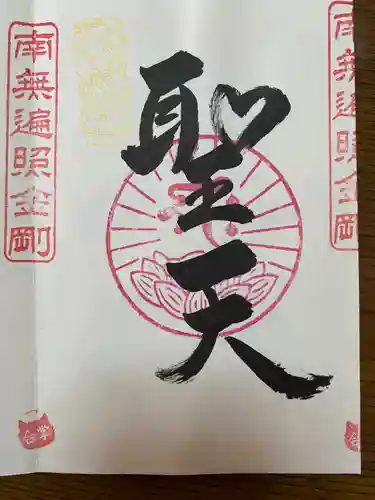 南無遍照金剛
聖天
南無遍照金剛
合掌